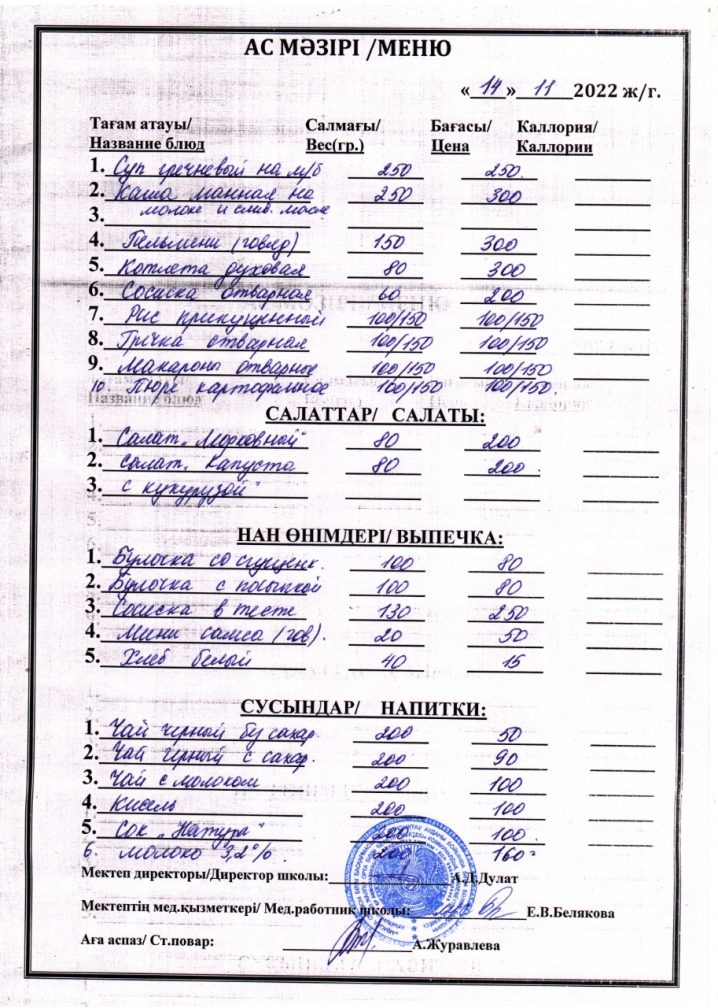 АС МӘЗІРІ /МЕНЮ
« 14 » 11 2022 ж/г.
Тағам атауы/ Салмағы/ Бағасы/ Каллория/
Название блюд Вес(гр.) Цена Каллории
1. Суп гречневый на м/б 250 250
2. Каша манная на 250 300
3. молоке и слив. масле
4. Пельмени (говяд) 150 300
5. Котлета духовая 80 300
6. Сосиска отварная 60 200
7. Рис припущенный 100/150 100/150
8. Гречка отварная 100/150 100/150
9. Макароны отварные 100/150 100/150
10. Пюре картофельное 100/150 100/150.
САЛАТТАР/ САЛАТЫ:
1. Салат „Морковный" 80 200
2. салат „Капуста 80 200
3. с кукурузой"
НАН ӨНІМДЕРІ/ ВЫПЕЧКА:
1. Булочка со сгущенк. 100 80
2. Булочка с посыпкой 100 80
3. Сосиска в тесте 130 250
4. Мини самса (гов). 20 50
5. Хлеб белый 40 15
СУСЫНДАР/ НАПИТКИ:
1. Чай черный без сахар. 200 50
2. Чай черный с сахар. 200 90
3. Чай с молоком 200 100
4. Кисель 200 100
5. Сок „Натура" 200 100.
6. молоко 3,2%. 200 160
Мектеп директоры/Директор школы: А.Д.Дулат
Мектептің мед.қызметкері/ Мед.работник школы: Е.В.Белякова
Аға аспаз/ Ст.повар: А.Журавлева